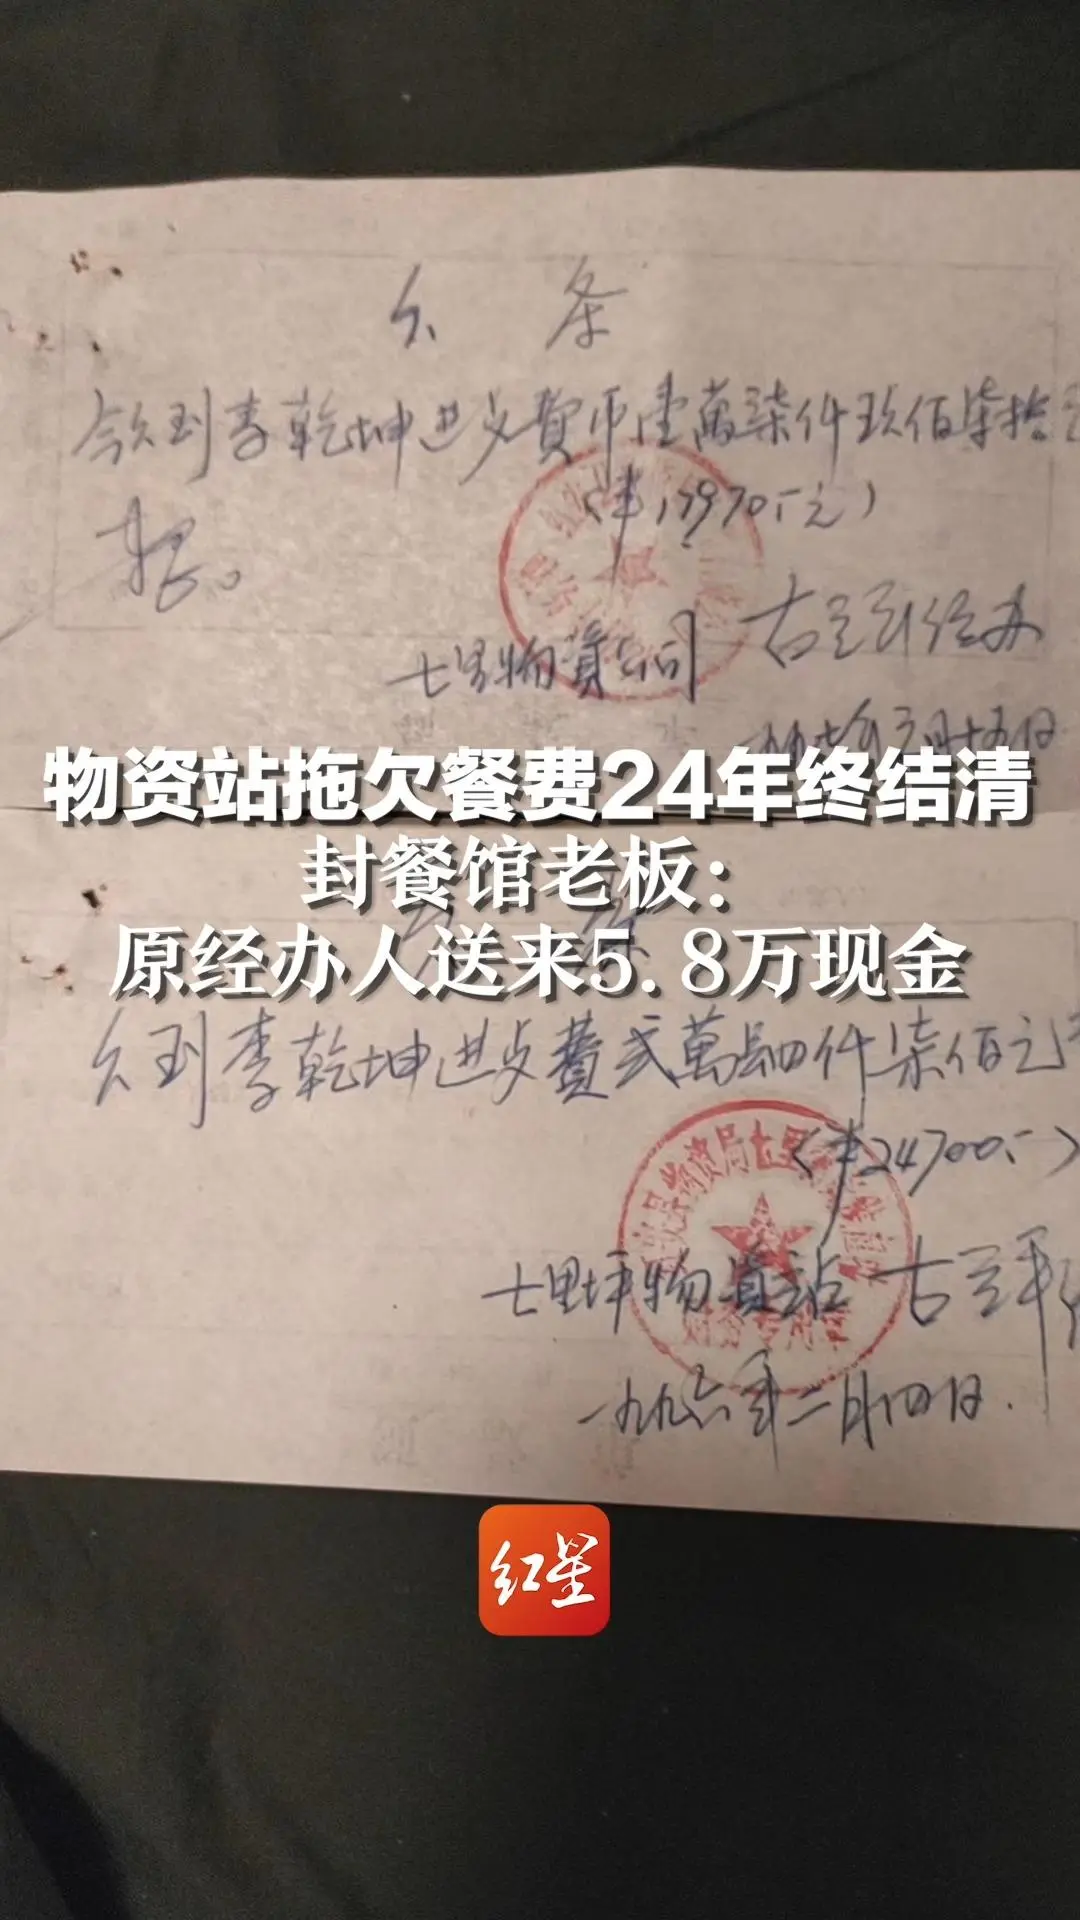 欠 条
今欠到李乾坤进步费币壹萬柒仟玖佰柒拾
(￥17970.-元)
据。
七里物资公司 古 经办
年 月十五日
物资站拖欠餐费24年终结清
封餐馆老板：
原经办人送来5.8万现金
欠到李乾坤进步费贰萬肆仟柒佰元
(￥24700.-)
七里坪物资站 古
物资局七里
财务专用章
一九九六年二月四日.
红星